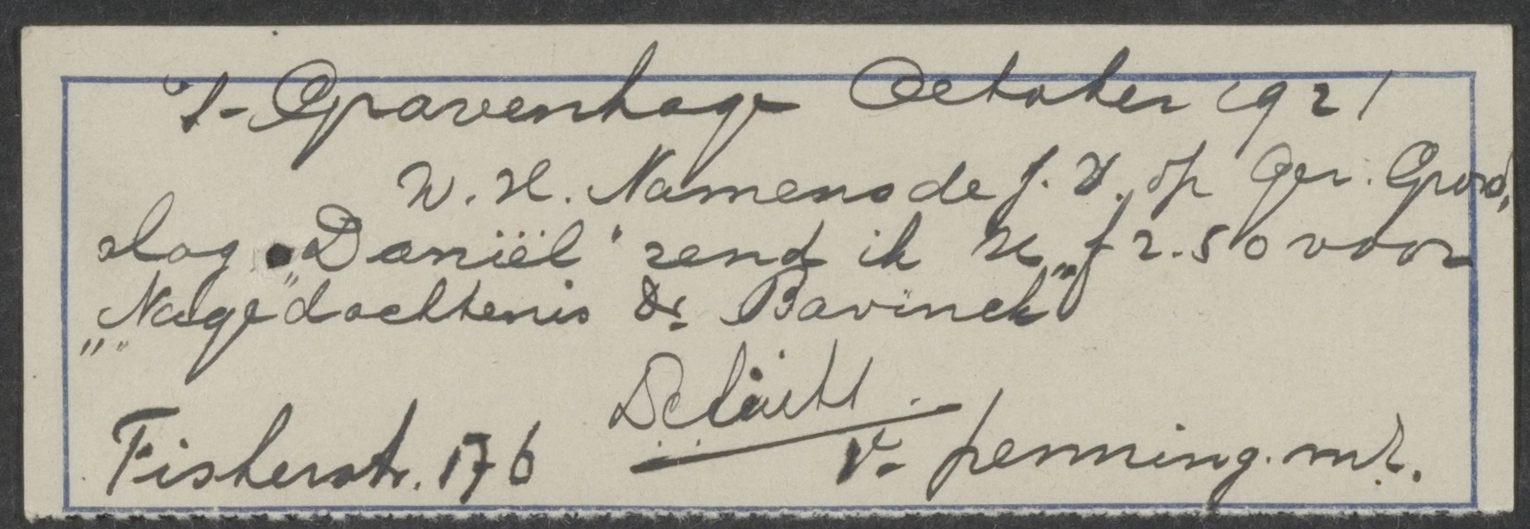 's-Gravenhage October 1921
W. H. Namens de J. V. op Ger. Grond,
slag „Daniël" zend ik U f 2.50 voor
„Nagedachtenis Dr. Bavinck"
Fisherstr. 176 v. penning.mr.